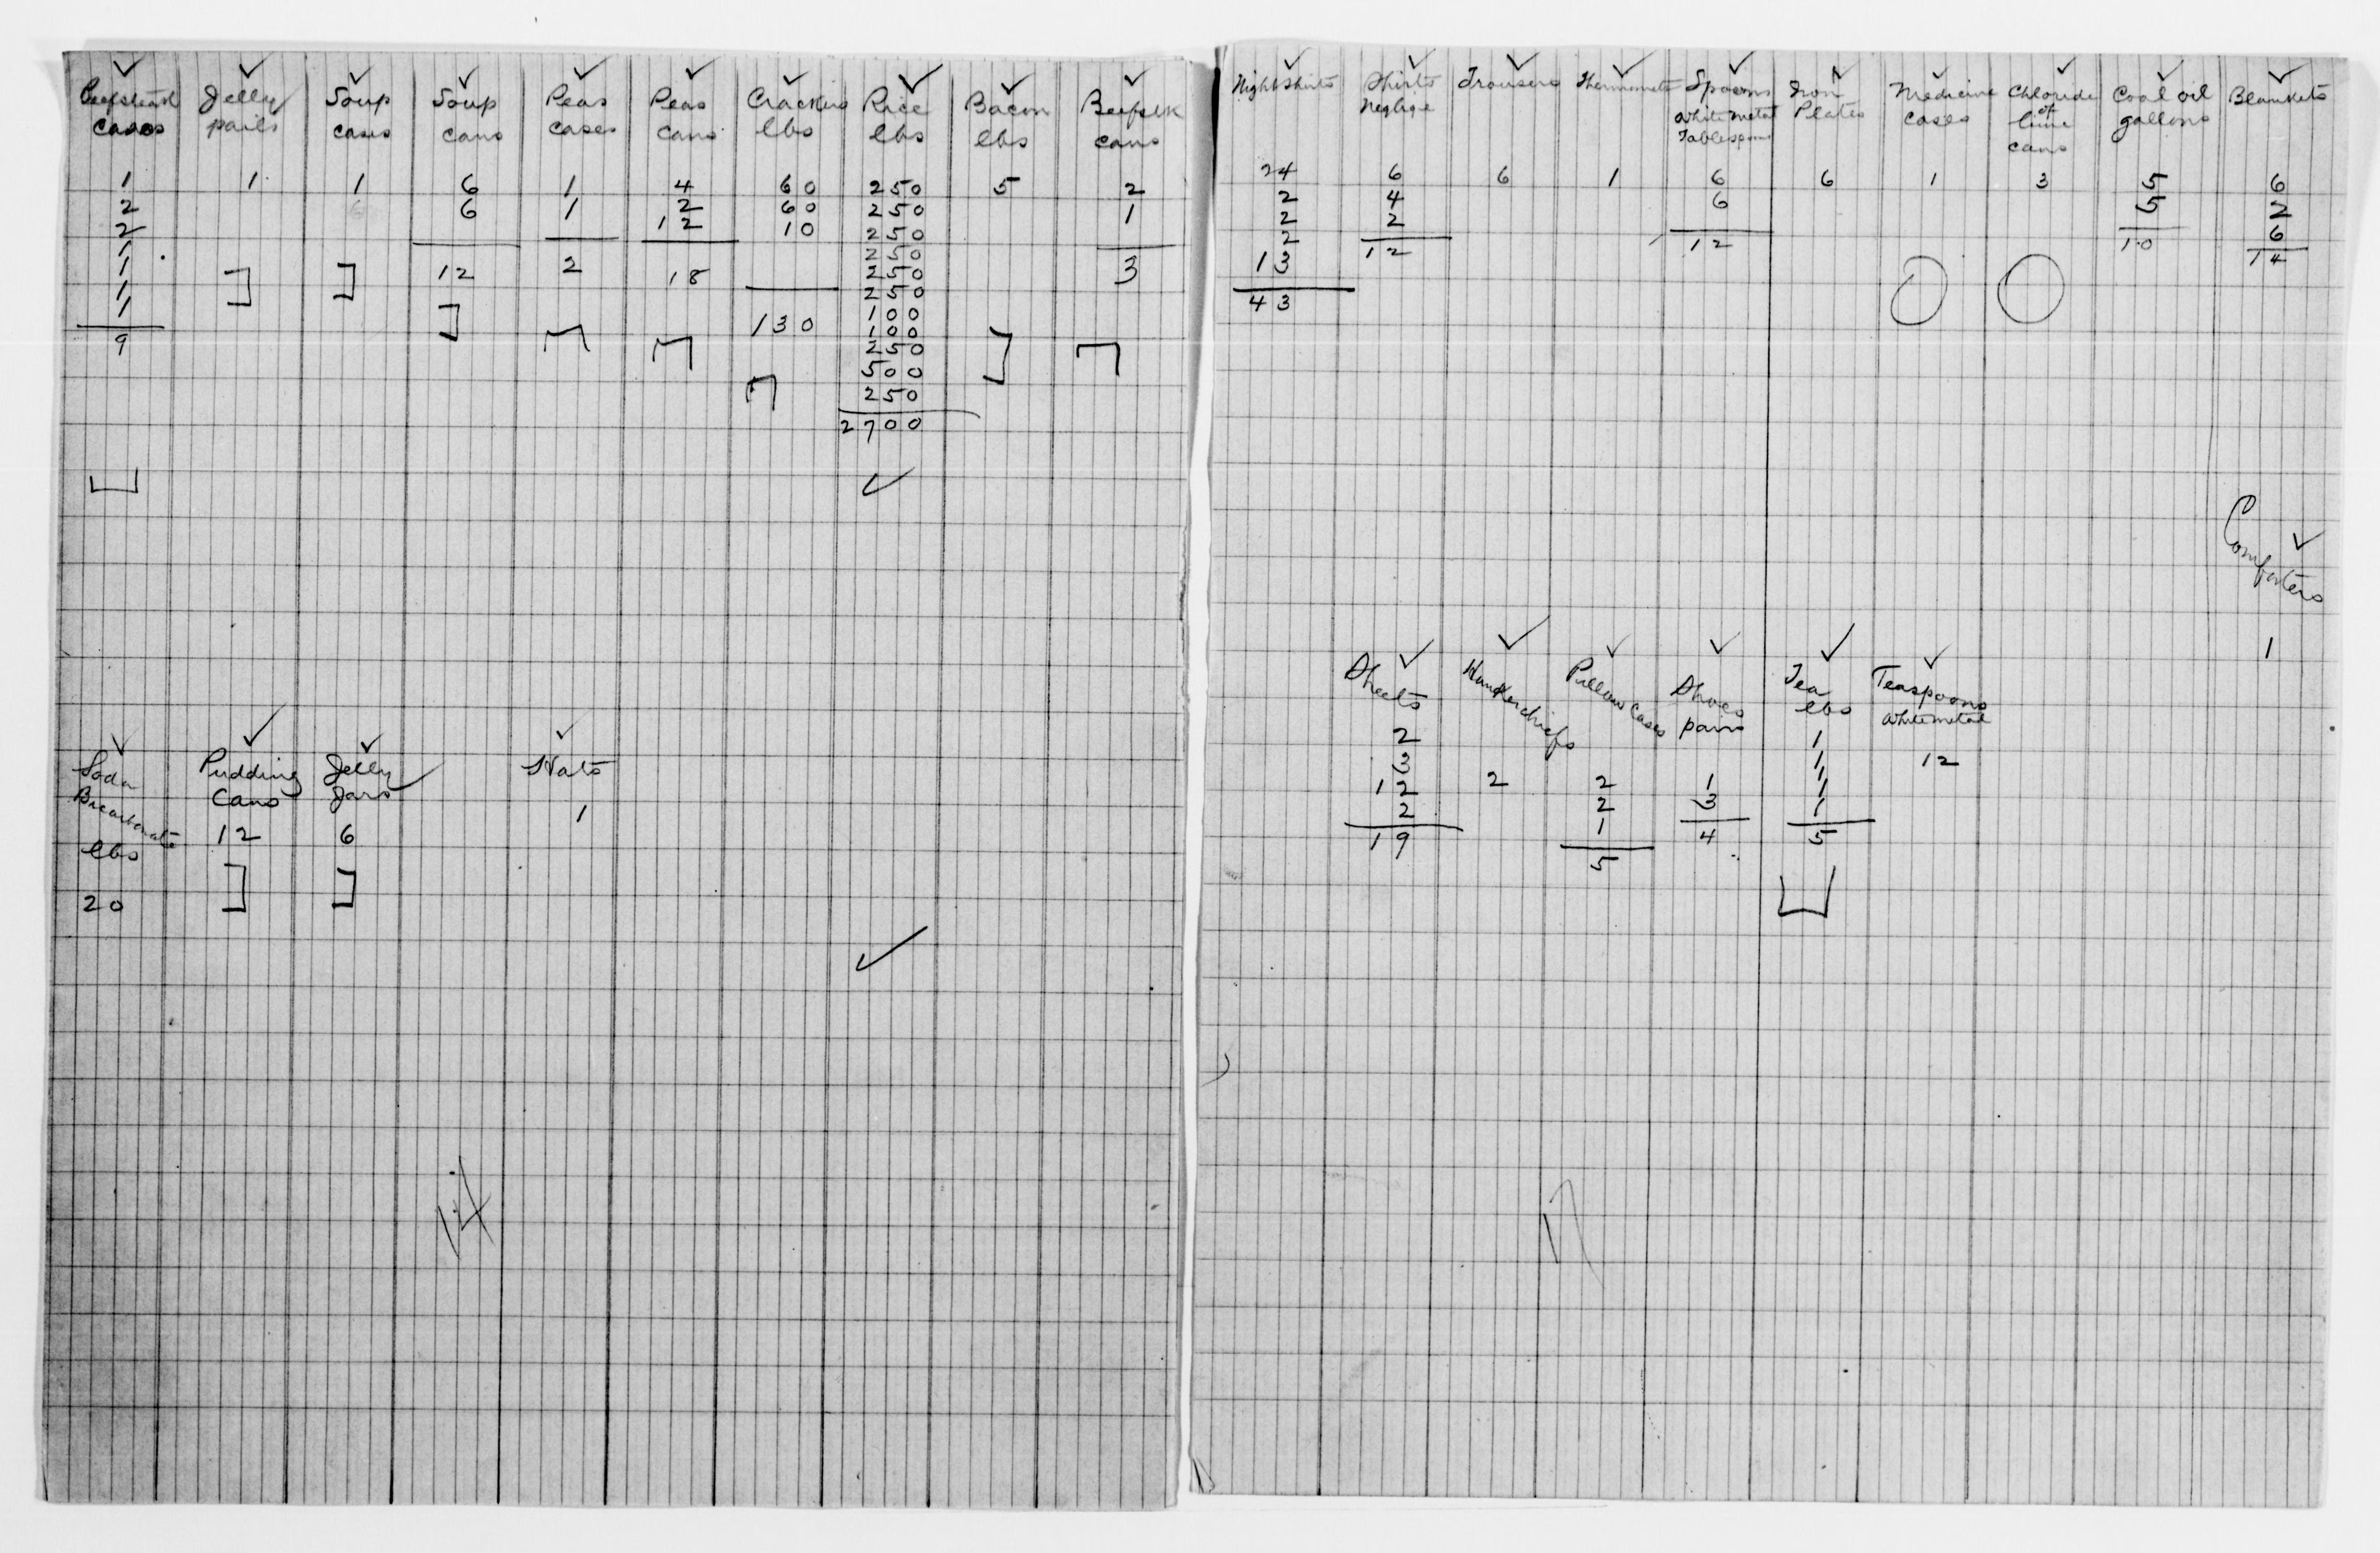 ✓ ✓ ✓ ✓ ✓ ✓ ✓ ✓ ✓ ✓
Beefsteak Jelly Soup Soup Peas Peas Crackers Rice Bacon Beefstk
cases pails cases cans cases cans lbs lbs lbs cans
1 1 1 6 1 4 60 250 5 2
2 6 1 2 60 250 1
2 12 10 250
1 250
1 12 2 18 250 3
1 250
1 130 100
9 100
250
500
250
2700
✓
✓ ✓ ✓ ✓
Soda Pudding Jelly Hats
Bicarbonate Cans Jars 1
lbs 12 6
20
✓
14
✓ ✓ ✓ ✓ ✓ ✓ ✓ ✓ ✓ ✓
Nightshirts Shirts Trousers Thermometer Spoons Iron Medicine Chloride Coal oil Blankets
Neglige white metal Plates cases of gallons
Tablespoons lime
cans
24 6 6 1 6 6 1 3 5 6
2 4 6 5 2
2 2 6
2 12 12 10 14
13
43
✓
Comforters
1
✓ ✓ ✓ ✓ ✓ ✓
Sheets Handkerchiefs Pillow cases Shoes Tea Teaspoons
pairs lbs white metal
2 1
3 1 12
12 2 2 1 1
2 2 3 1
1
19 5 4 5
17